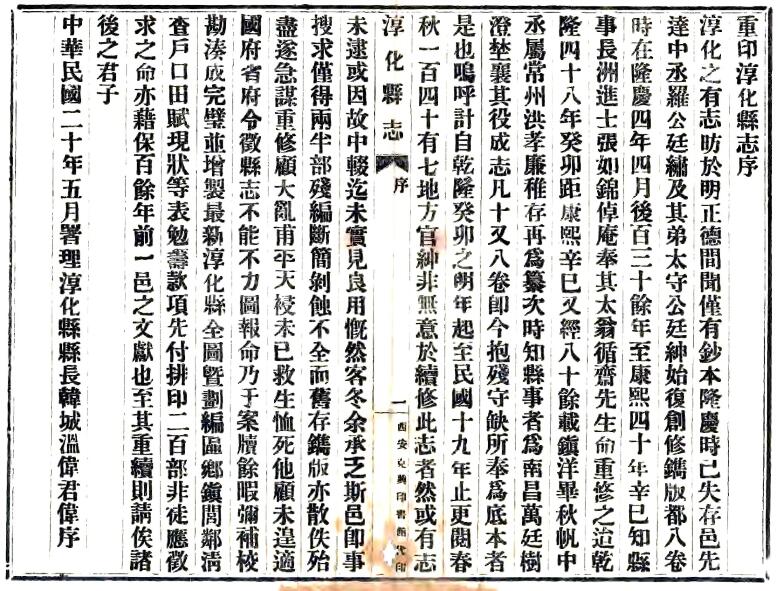 重印淳化縣志序
淳化之有志昉於明正德間聞僅有鈔本隆慶時已失存邑先
達中丞羅公廷繡及其弟太守公廷紳始復創修鐫版都八卷
時在隆慶四年四月後百三十餘年至康熙四十年辛巳知縣
事長洲進士張如錦倬庵奉其太翁循齋先生命重修之迨乾
隆四十八年癸卯距康熙辛巳又經八十餘載鎮洋畢秋帆中
丞屬常州洪孝廉稚存再爲纂次時知縣事者爲南昌萬廷樹
澄埜襄其役成志凡十又八卷卽今抱殘守缺所奉爲底本者
是也嗚呼計自乾隆癸卯之明年起至民國十九年止更閱春
秋一百四十有七地方官紳非無意於續修此志者然或有志
淳化縣志
序
一
西安克興印書館代印
未逮或因故中輟迄未實見良用慨然客冬余承乏斯邑卽事
搜求僅得兩半部殘編斷簡剝蝕不全而舊存鐫版亦散佚殆
盡遂急謀重修顧大亂甫平天祲未已救生恤死他顧未遑適
國府省府令徵縣志不能不力圖報命乃于案牘餘暇彌補校
勘湊成完璧並增製最新淳化縣全圖暨劃編區鄉鎮閭鄰淸
查戶口田賦現狀等表勉籌款項先付排印二百部非徒應徵
求之命亦藉保百餘年前一邑之文獻也至其重續則請俟諸
後之君子
中華民國二十年五月署理淳化縣縣長韓城溫偉君偉序